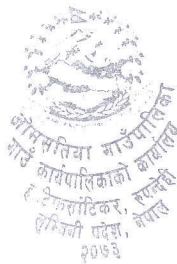 ओमसतिया गाउँपालिका
गाउँ कार्यपालिकाको कार्यालय
टिकुलीगढ, रुपन्देही
लुम्बिनी प्रदेश, नेपाल
२०७३